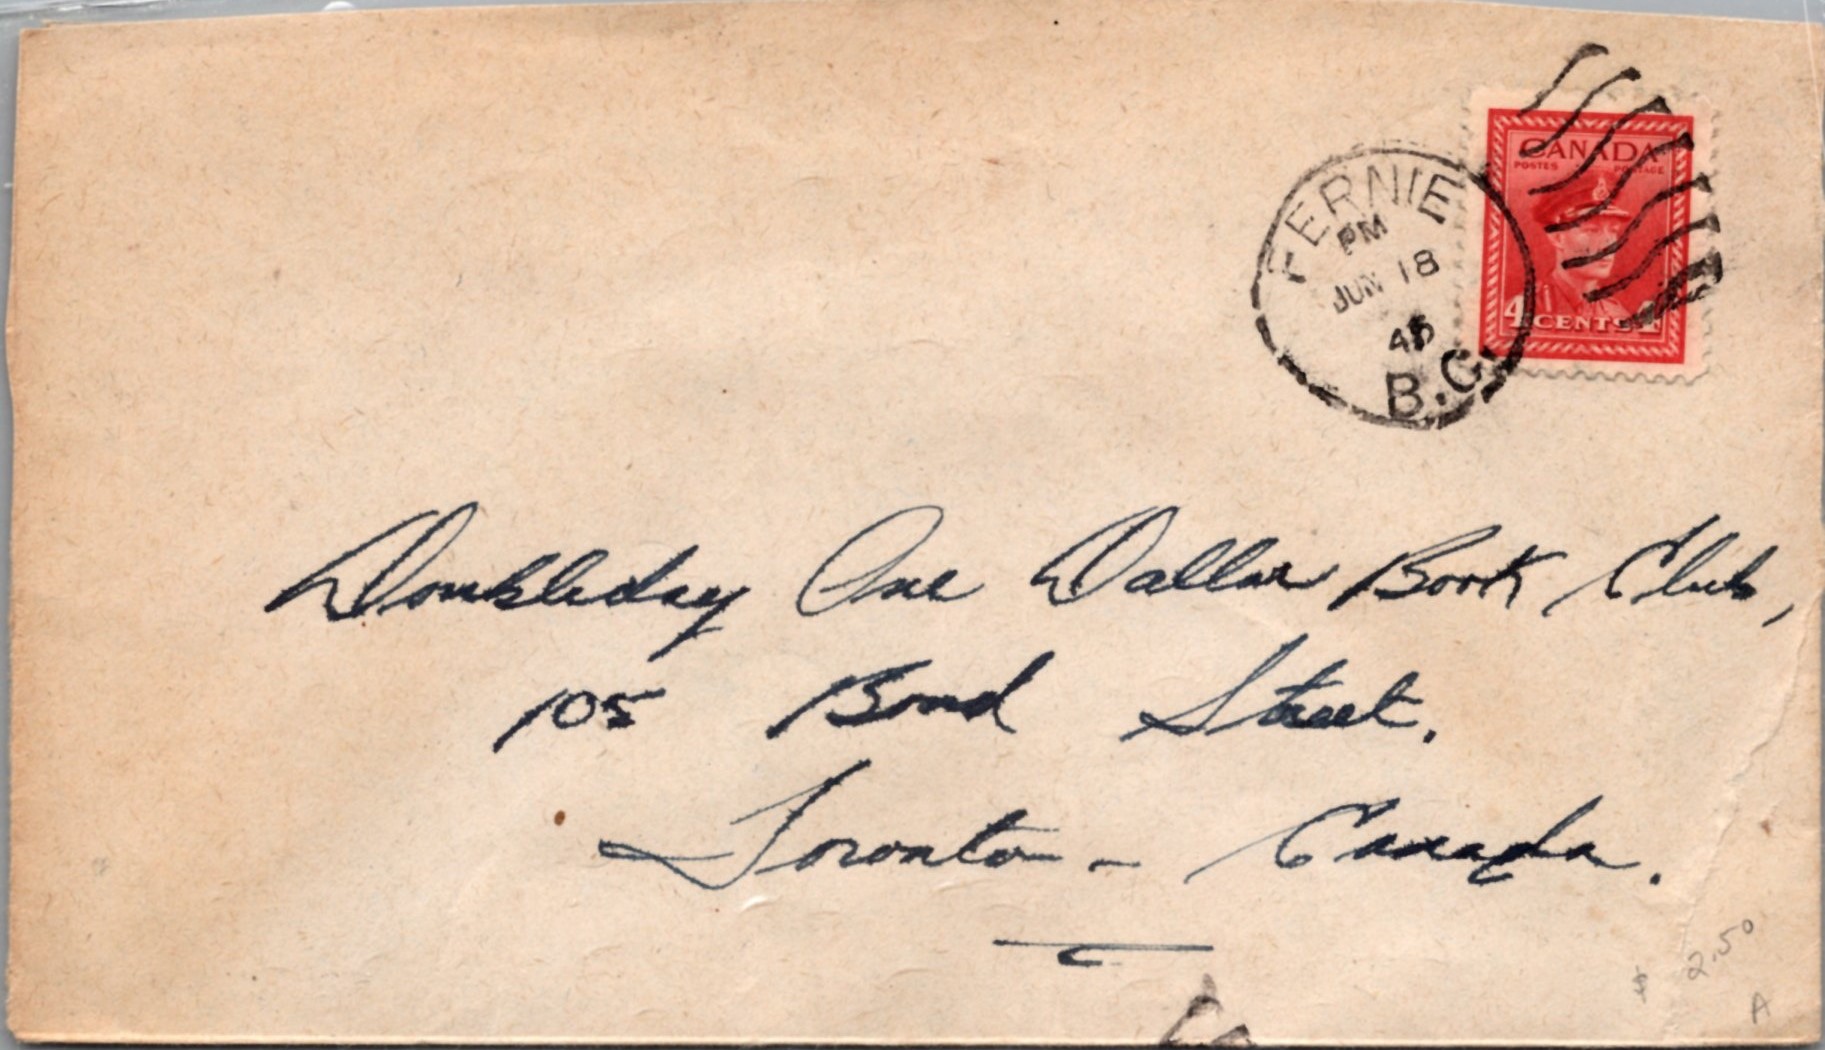 CANADA
POSTES POSTAGE
4 CENTS 4
FERNIE
PM
JUN 18
45
B.C.
Doubleday One Dollar Book Club,
105 Bond Street.
Toronto - Canada.
$ 2.50
A